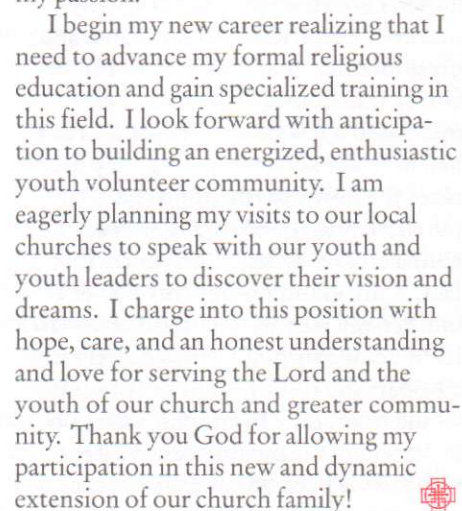 my passion.
I begin my new career realizing that I
need to advance my formal religious
education and gain specialized training in
this field.  I look forward with anticipa-
tion to building an energized, enthusiastic
youth volunteer community.  I am
eagerly planning my visits to our local
churches to speak with our youth and
youth leaders to discover their vision and
dreams.  I charge into this position with
hope, care, and an honest understanding
and love for serving the Lord and the
youth of our church and greater commu-
nity.  Thank you God for allowing my
participation in this new and dynamic
extension of our church family!